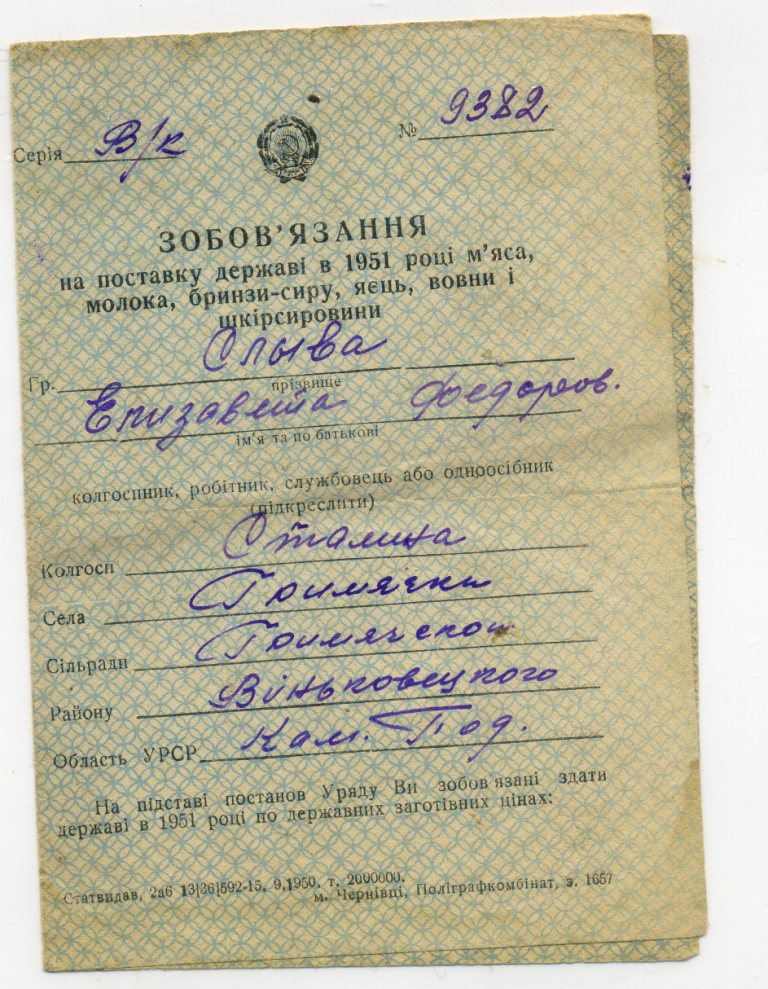 Серія В/к № 9382
ЗОБОВ'ЯЗАННЯ
на поставку державі в 1951 році м'яса,
молока, бринзи-сиру, яєць, вовни і
шкірсировини
Гр. Слыва
прізвище
Елизавета Федоров.
ім'я та по батькові
колгоспник, робітник, службовець або одноосібник
(підкреслити)
Колгосп Сталина
Села Гримячки
Сільради Гримячской
Району Віньковецкого
Область УРСР Кам. Под.
На підставі постанов Уряду Ви зобов'язані здати
державі в 1951 році по державних заготівних цінах:
Статвидав, 2аб 13|36|592-15. 9.1950. т. 2000000.
м. Чернівці, Поліграфкомбінат, з. 1657